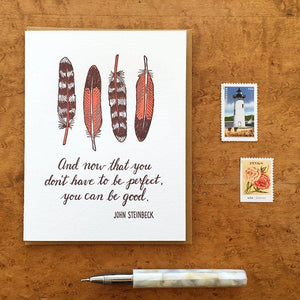 And now that you
don't have to be perfect,
you can be good.
JOHN STEINBECK